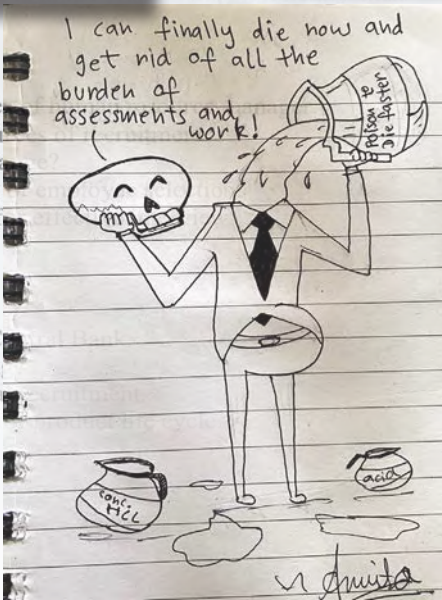 I can finally die now and
get rid of all the
burden of
assessments and
work!
Poison to
Die faster
conc.
HCL
acid